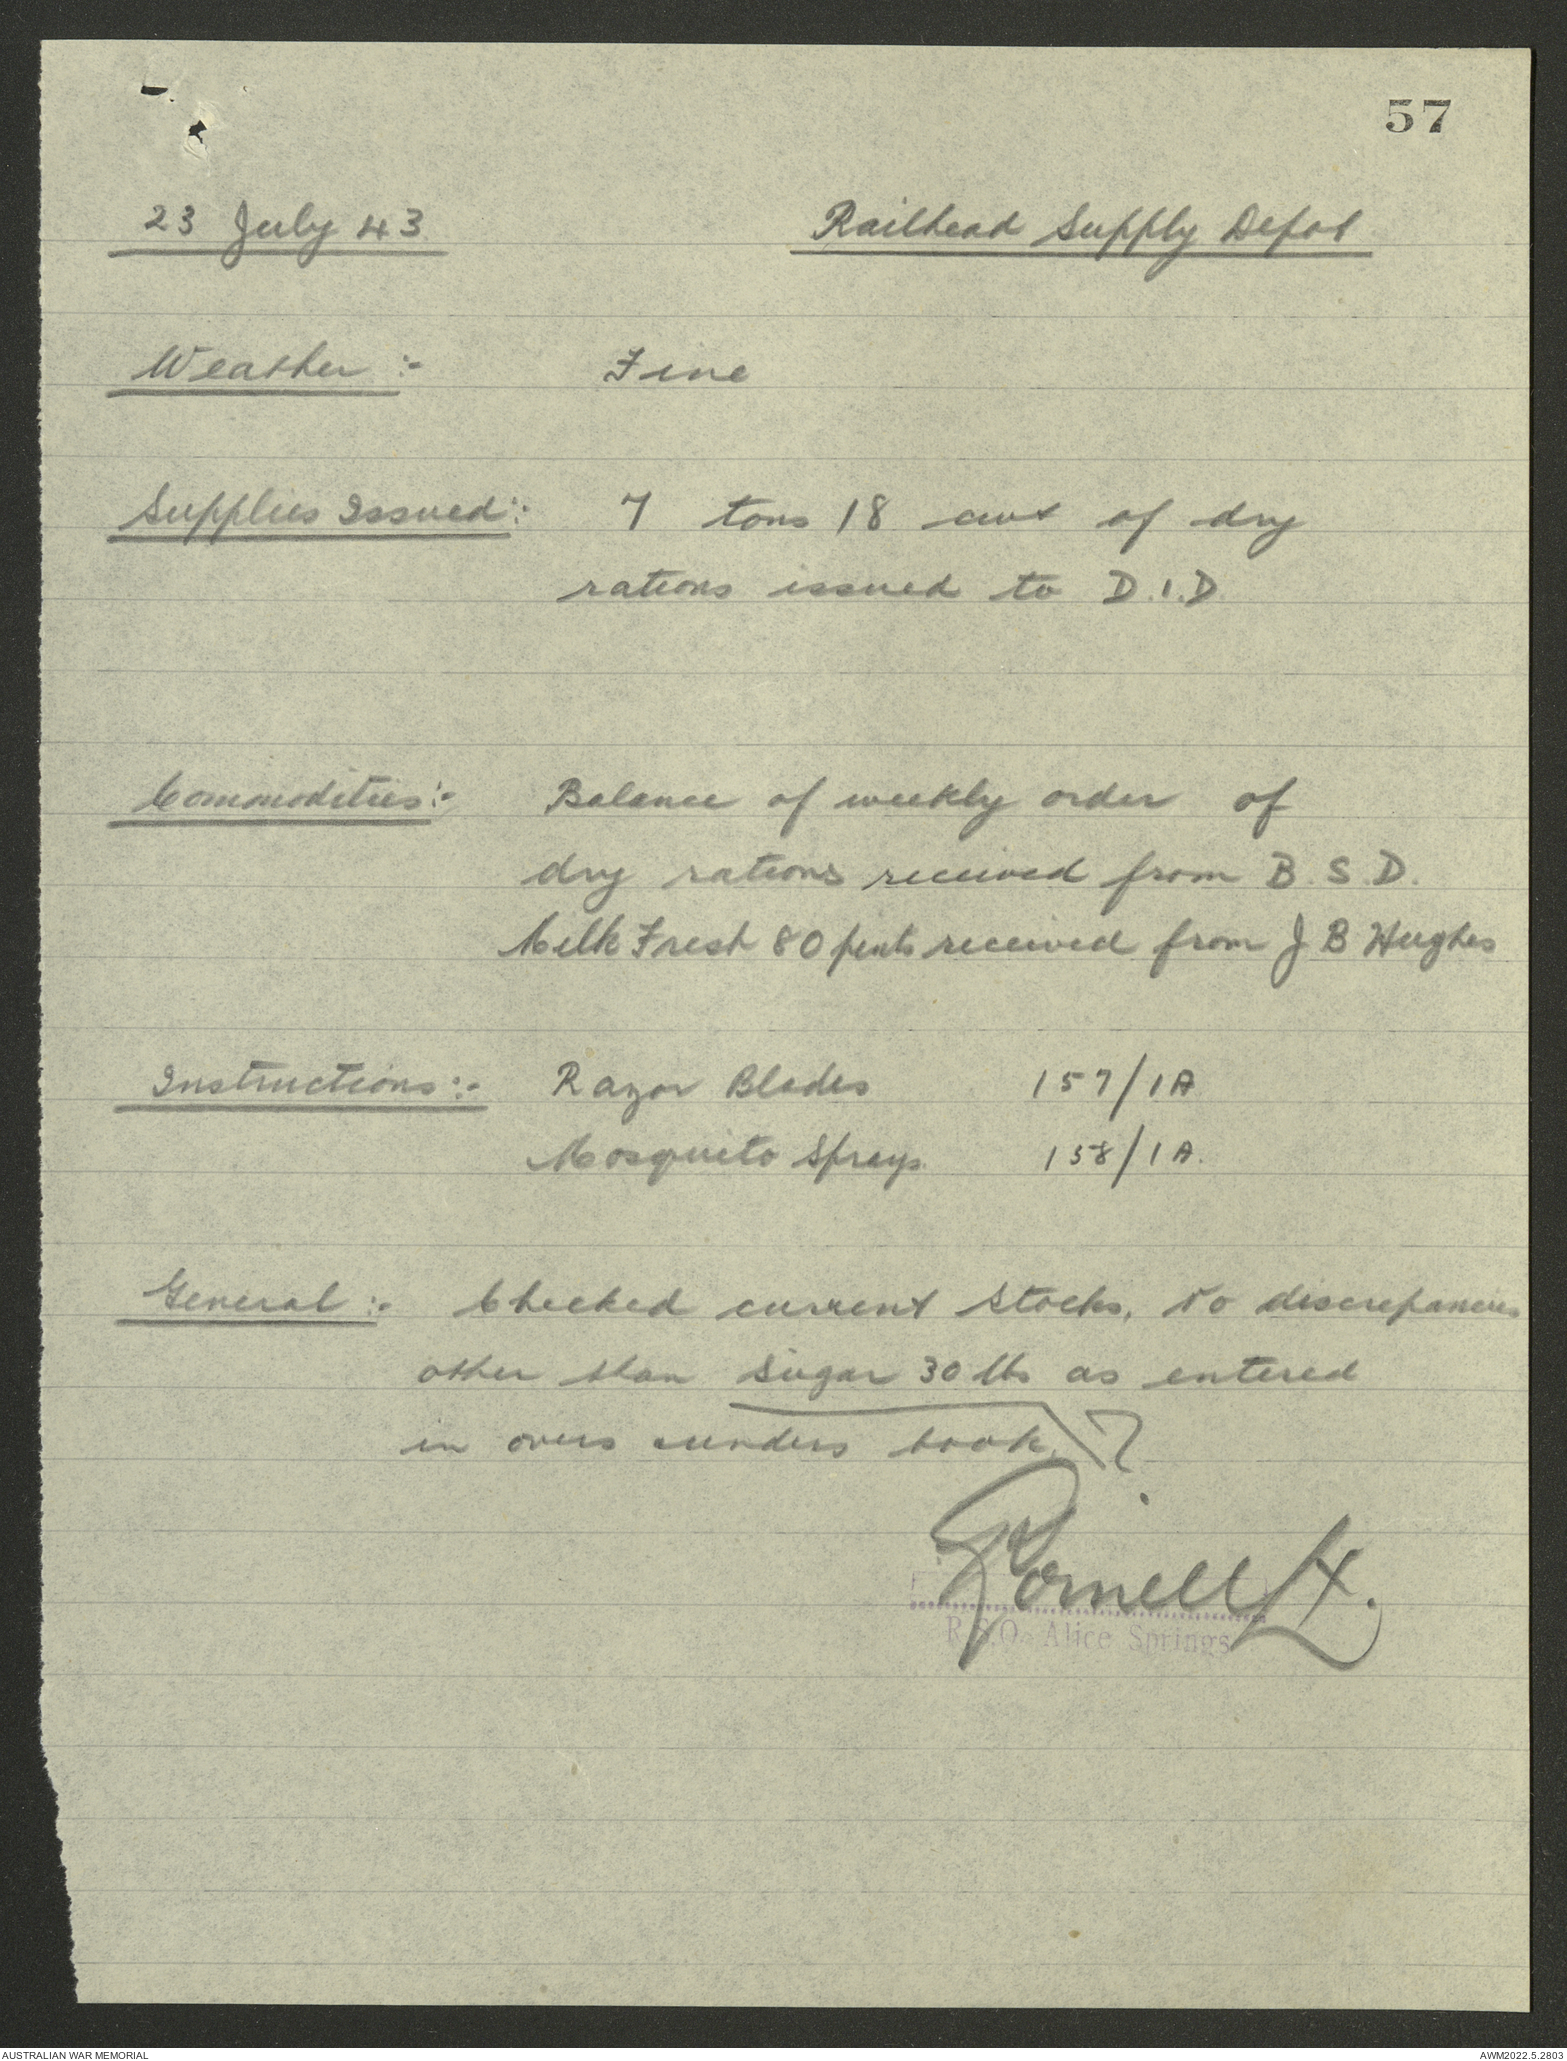 57
23 July 43 Railhead Supply Depot
Weather :- Fine
Supplies Issued :- 7 tons 18 cwt of dry
rations issued to D.I.D
Commodities :- Balance of weekly order of
dry rations received from B.S.D.
Milk Fresh 80 pints received from J B Hughes
Instructions :- Razor Blades 157/1A
Mosquito Sprays. 158/1A.
General :- Checked current stocks. No discrepancies
other than sugar 30 lbs as entered
in overs & unders book. ?
Lt.
R.S.O. Alice Springs
AUSTRALIAN WAR MEMORIAL AWM2022.5.2803